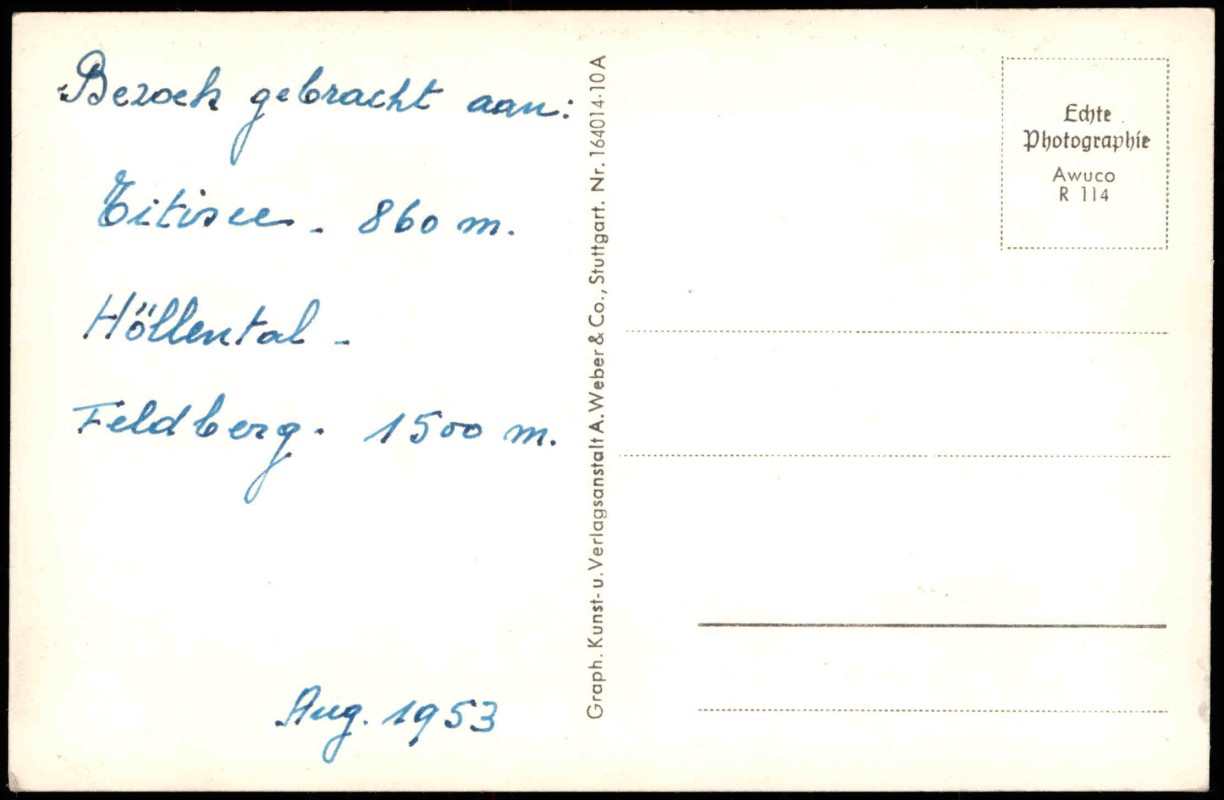 Bezoek gebracht aan:
Titisee - 860 m.
Höllental -
Feldberg. 1500 m.
Aug. 1953
Graph. Kunst- u. Verlagsanstalt A. Weber & Co., Stuttgart. Nr. 164014-10A
Echte
Photographie
Awuco
R 114